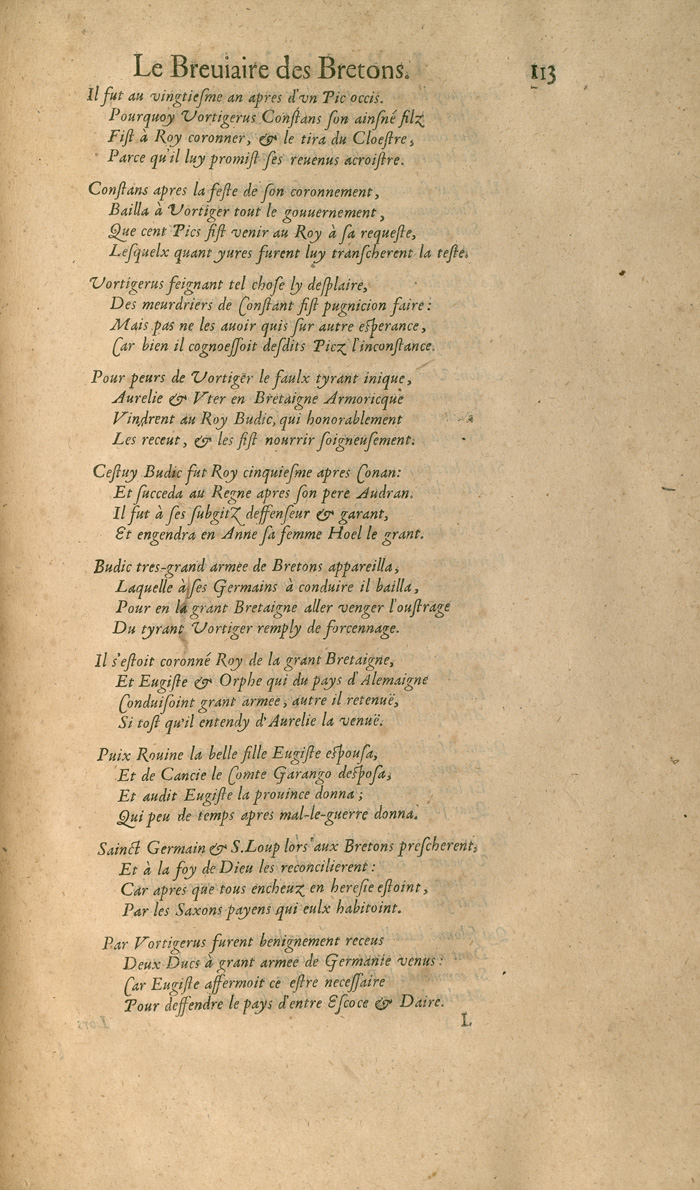 Le Breuiaire des Bretons. 113
Il fut au vingtiesme an apres d'vn Pic occis.
Pourquoy Vortigerus Constans son ainsné filz
Fist à Roy coronner, & le tira du Cloestre,
Parce qu'il luy promist ses reuenus acroistre.
Constans apres la feste de son coronnement,
Bailla à Vortiger tout le gouuernement,
Que cent Pics fist venir au Roy à sa requeste,
Lesquelx quant yures furent luy transcherent la teste.
Vortigerus feignant tel chose ly desplaire,
Des meurdriers de Constant fist pugnicion faire:
Mais pas ne les auoir quis sur autre esperance,
Car bien il cognoessoit desdits Picz l'inconstance.
Pour peurs de Vortiger le faulx tyrant inique,
Aurelie & Vter en Bretaigne Armoricque
Vindrent au Roy Budic, qui honorablement
Les receut, & les fist nourrir soigneusement.
Cestuy Budic fut Roy cinquiesme apres Conan:
Et succeda au Regne apres son pere Audran.
Il fut à ses subgitz deffenseur & garant,
Et engendra en Anne sa femme Hoel le grant.
Budic tres-grand armée de Bretons appareilla,
Laquelle à ses Germains à conduire il bailla,
Pour en la grant Bretaigne aller venger l'oustrage
Du tyrant Vortiger remply de forcennage.
Il s'estoit coronné Roy de la grant Bretaigne,
Et Eugiste & Orphe qui du pays d'Alemaigne
Conduisoint grant armee, autre il retenuë,
Si tost qu'il entendy d'Aurelie la venuë.
Puix Rouine la belle fille Eugiste espousa,
Et de Cancie le Comte Garango desposa,
Et audit Eugiste la prouince donna;
Qui peu de temps apres mal-le-guerre donna.
Sainct Germain & S. Loup lors aux Bretons prescherent,
Et à la foy de Dieu les reconcilierent:
Car apres que tous encheuz en heresie estoint,
Par les Saxons payens qui eulx habitoint.
Par Vortigerus furent benignement receus
Deux Ducs à grant armee de Germanie venus:
Car Eugiste affermoit ce estre necessaire
Pour deffendre le pays d'entre Escoce & Daire.
L